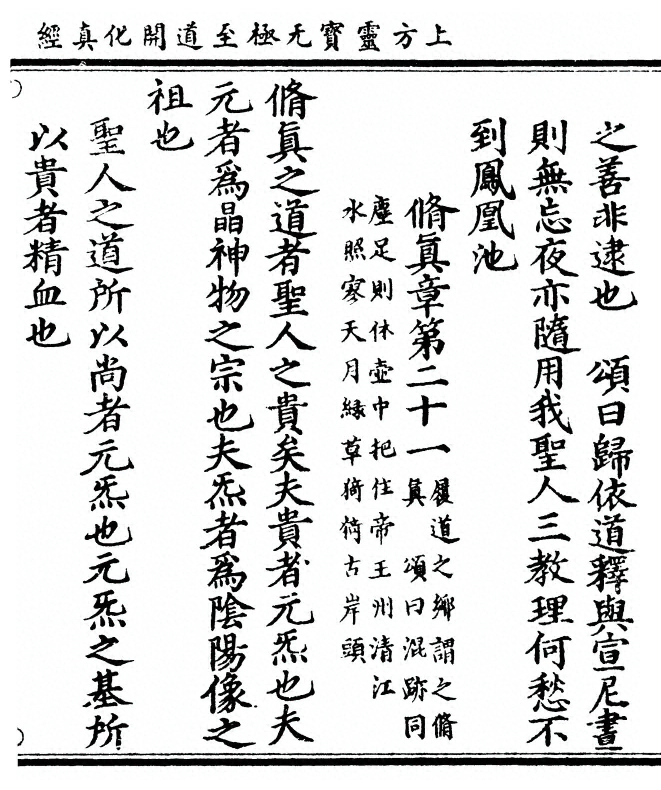 上方靈寶无極至道開化真經
之善非逮也　頌曰歸依道釋與宣尼晝
則無忘夜亦隨用我聖人三教理何愁不
到鳳凰池
脩眞章第二十一
履道之鄉謂之脩
眞　頌曰混跡同
塵足則休壺中把住帝王州清江
水照寒天月緑草猗猗古岸頭
脩眞之道者聖人之貴矣夫貴者元炁也夫
元者爲晶神物之宗也夫炁者爲陰陽像之
祖也
聖人之道所以尚者元炁也元炁之基所
以貴者精血也